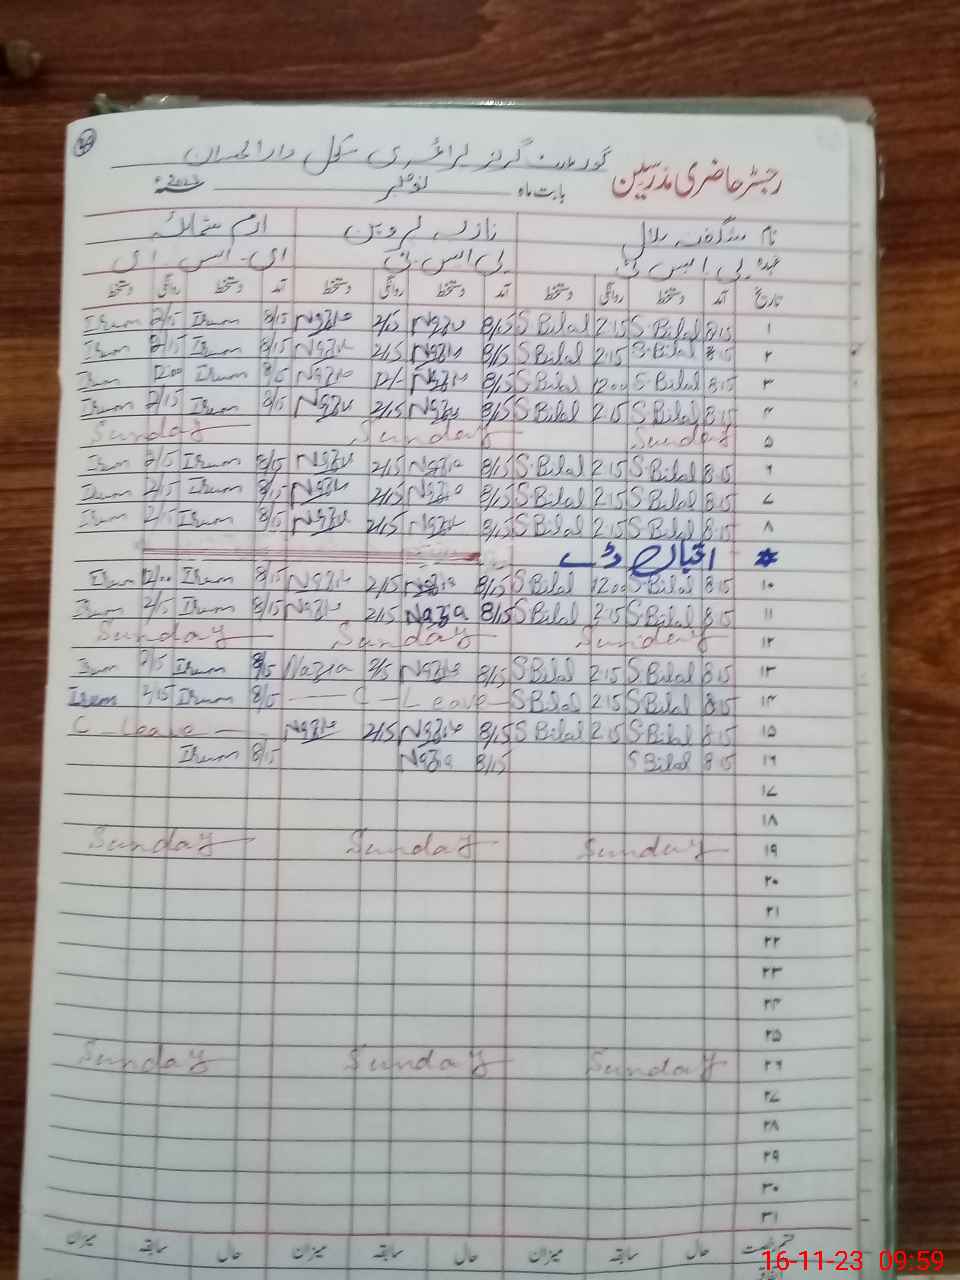 گورنمنٹ گرلز پرائمری سکول دارالحسان
رجسٹر حاضری مدرسین بابت ماہ نومبر 2023ء
نام شگفتہ بلال نازیہ پروین ارم
عہدہ پی ایس ٹی پی ایس ٹی ای ایس ای
تاریخ آمد دستخط روانگی دستخط آمد دستخط روانگی دستخط آمد دستخط روانگی دستخط
۱ 8:15 S.Bilal 2:15 S.Bilal 8/15 Nazia 2/15 Nazia 8/15 Irum 2/15 Irum
۲ 8:15 S.Bilal 2:15 S.Bilal 8/15 Nazia 2/15 Nazia 8/15 Irum 2/15 Irum
۳ 8:15 S.Bilal 12:00 S.Bilal 8/15 Nazia 12/- Nazia 8/15 Irum 12:00 Irum
۴ 8:15 S.Bilal 2:15 S.Bilal 8/15 Nazia 2/15 Nazia 8/15 Irum 2/15 Irum
۵ Sunday Sunday Sunday
۶ 8:15 S.Bilal 2:15 S.Bilal 8/15 Nazia 2/15 Nazia 8/15 Irum 2/15 Irum
۷ 8:15 S.Bilal 2:15 S.Bilal 8/15 Nazia 2/15 Nazia 8/15 Irum 2/15 Irum
۸ 8:15 S.Bilal 2:15 S.Bilal 8/15 Nazia 2/15 Nazia 8/15 Irum 2/15 Irum
اقبال ڈے
۱۰ 8:15 S.Bilal 12:00 S.Bilal 8/15 Nazia 2/15 Nazia 8/15 Irum 12/00 Irum
۱۱ 8:15 S.Bilal 2:15 S.Bilal 8/15 Nazia 2/15 Nazia 8/15 Irum 2/15 Irum
۱۲ Sunday Sunday Sunday
۱۳ 8:15 S.Bilal 2:15 S.Bilal 8/15 Nazia 2/15 Nazia 8/15 Irum 2/15 Irum
۱۴ 8:15 S.Bilal 2:15 S.Bilal C-Leave 8/15 Irum 2/15 Irum
۱۵ 8:15 S.Bilal 2:15 S.Bilal 8/15 Nazia 2/15 Nazia C-Leave
۱۶ 8:15 S.Bilal 8/15 Nazia 8/15 Irum
۱۷
۱۸
۱۹ Sunday Sunday Sunday
۲۰
۲۱
۲۲
۲۳
۲۴
۲۵
۲۶ Sunday Sunday Sunday
۲۷
۲۸
۲۹
۳۰
۳۱
حال سابقہ میزان حال سابقہ میزان حال سابقہ میزان
16-11-23 09:59